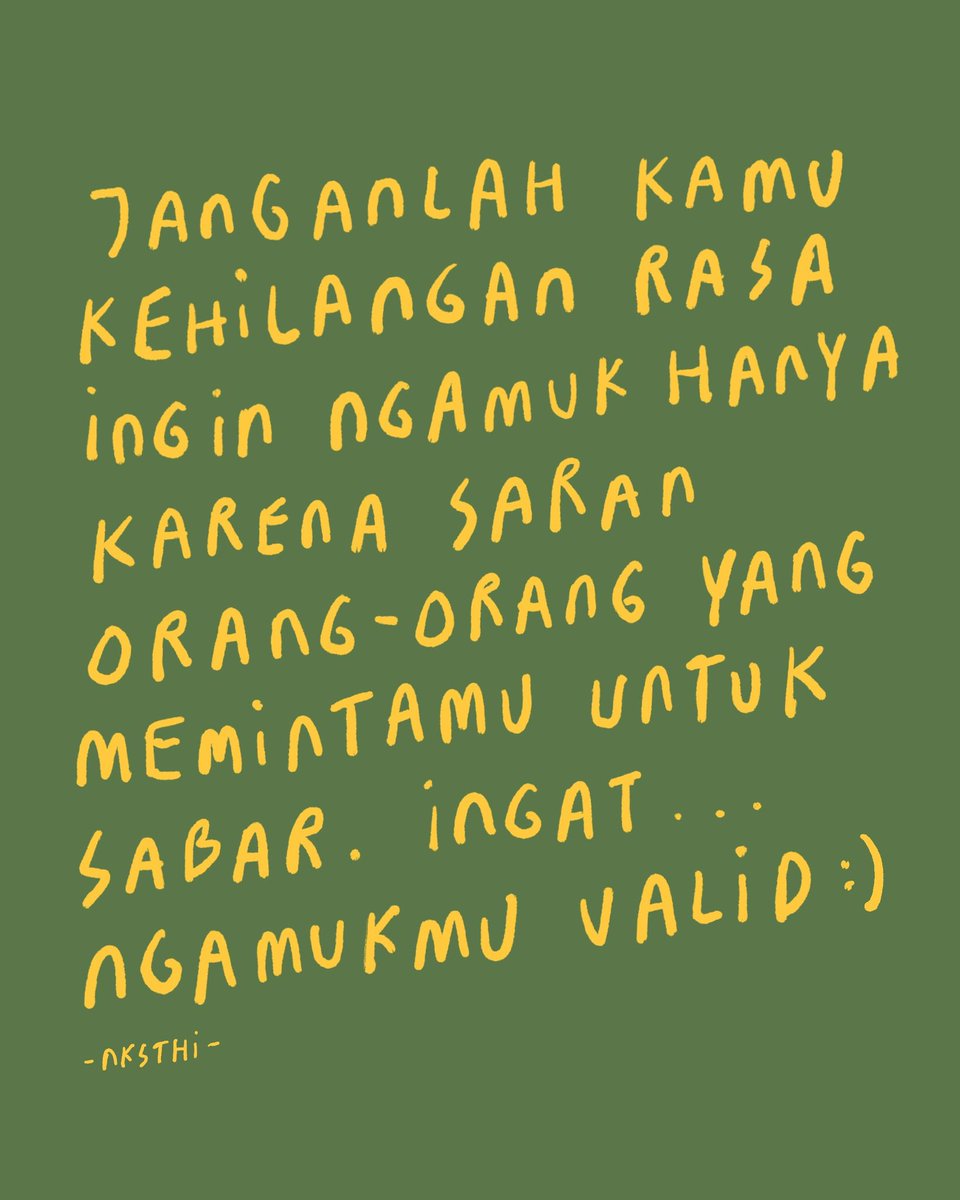 JANGANLAH KAMU
KEHILANGAN RASA
INGIN NGAMUK HANYA
KARENA SARAN
ORANG-ORANG YANG
MEMINTAMU UNTUK
SABAR. INGAT...
NGAMUKMU VALID :)
-NKSTHI-